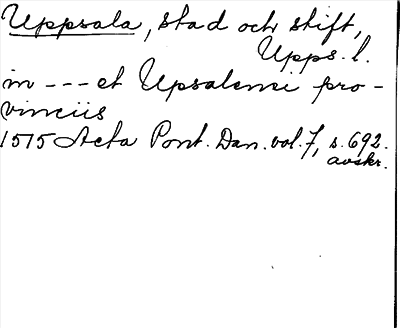 Uppsala, stad och stift,
Upps. l.
in --- et Upsalensi pro-
vinciis
1575 Acta Pont. Dan. vol. 7, s. 692.
avskr.